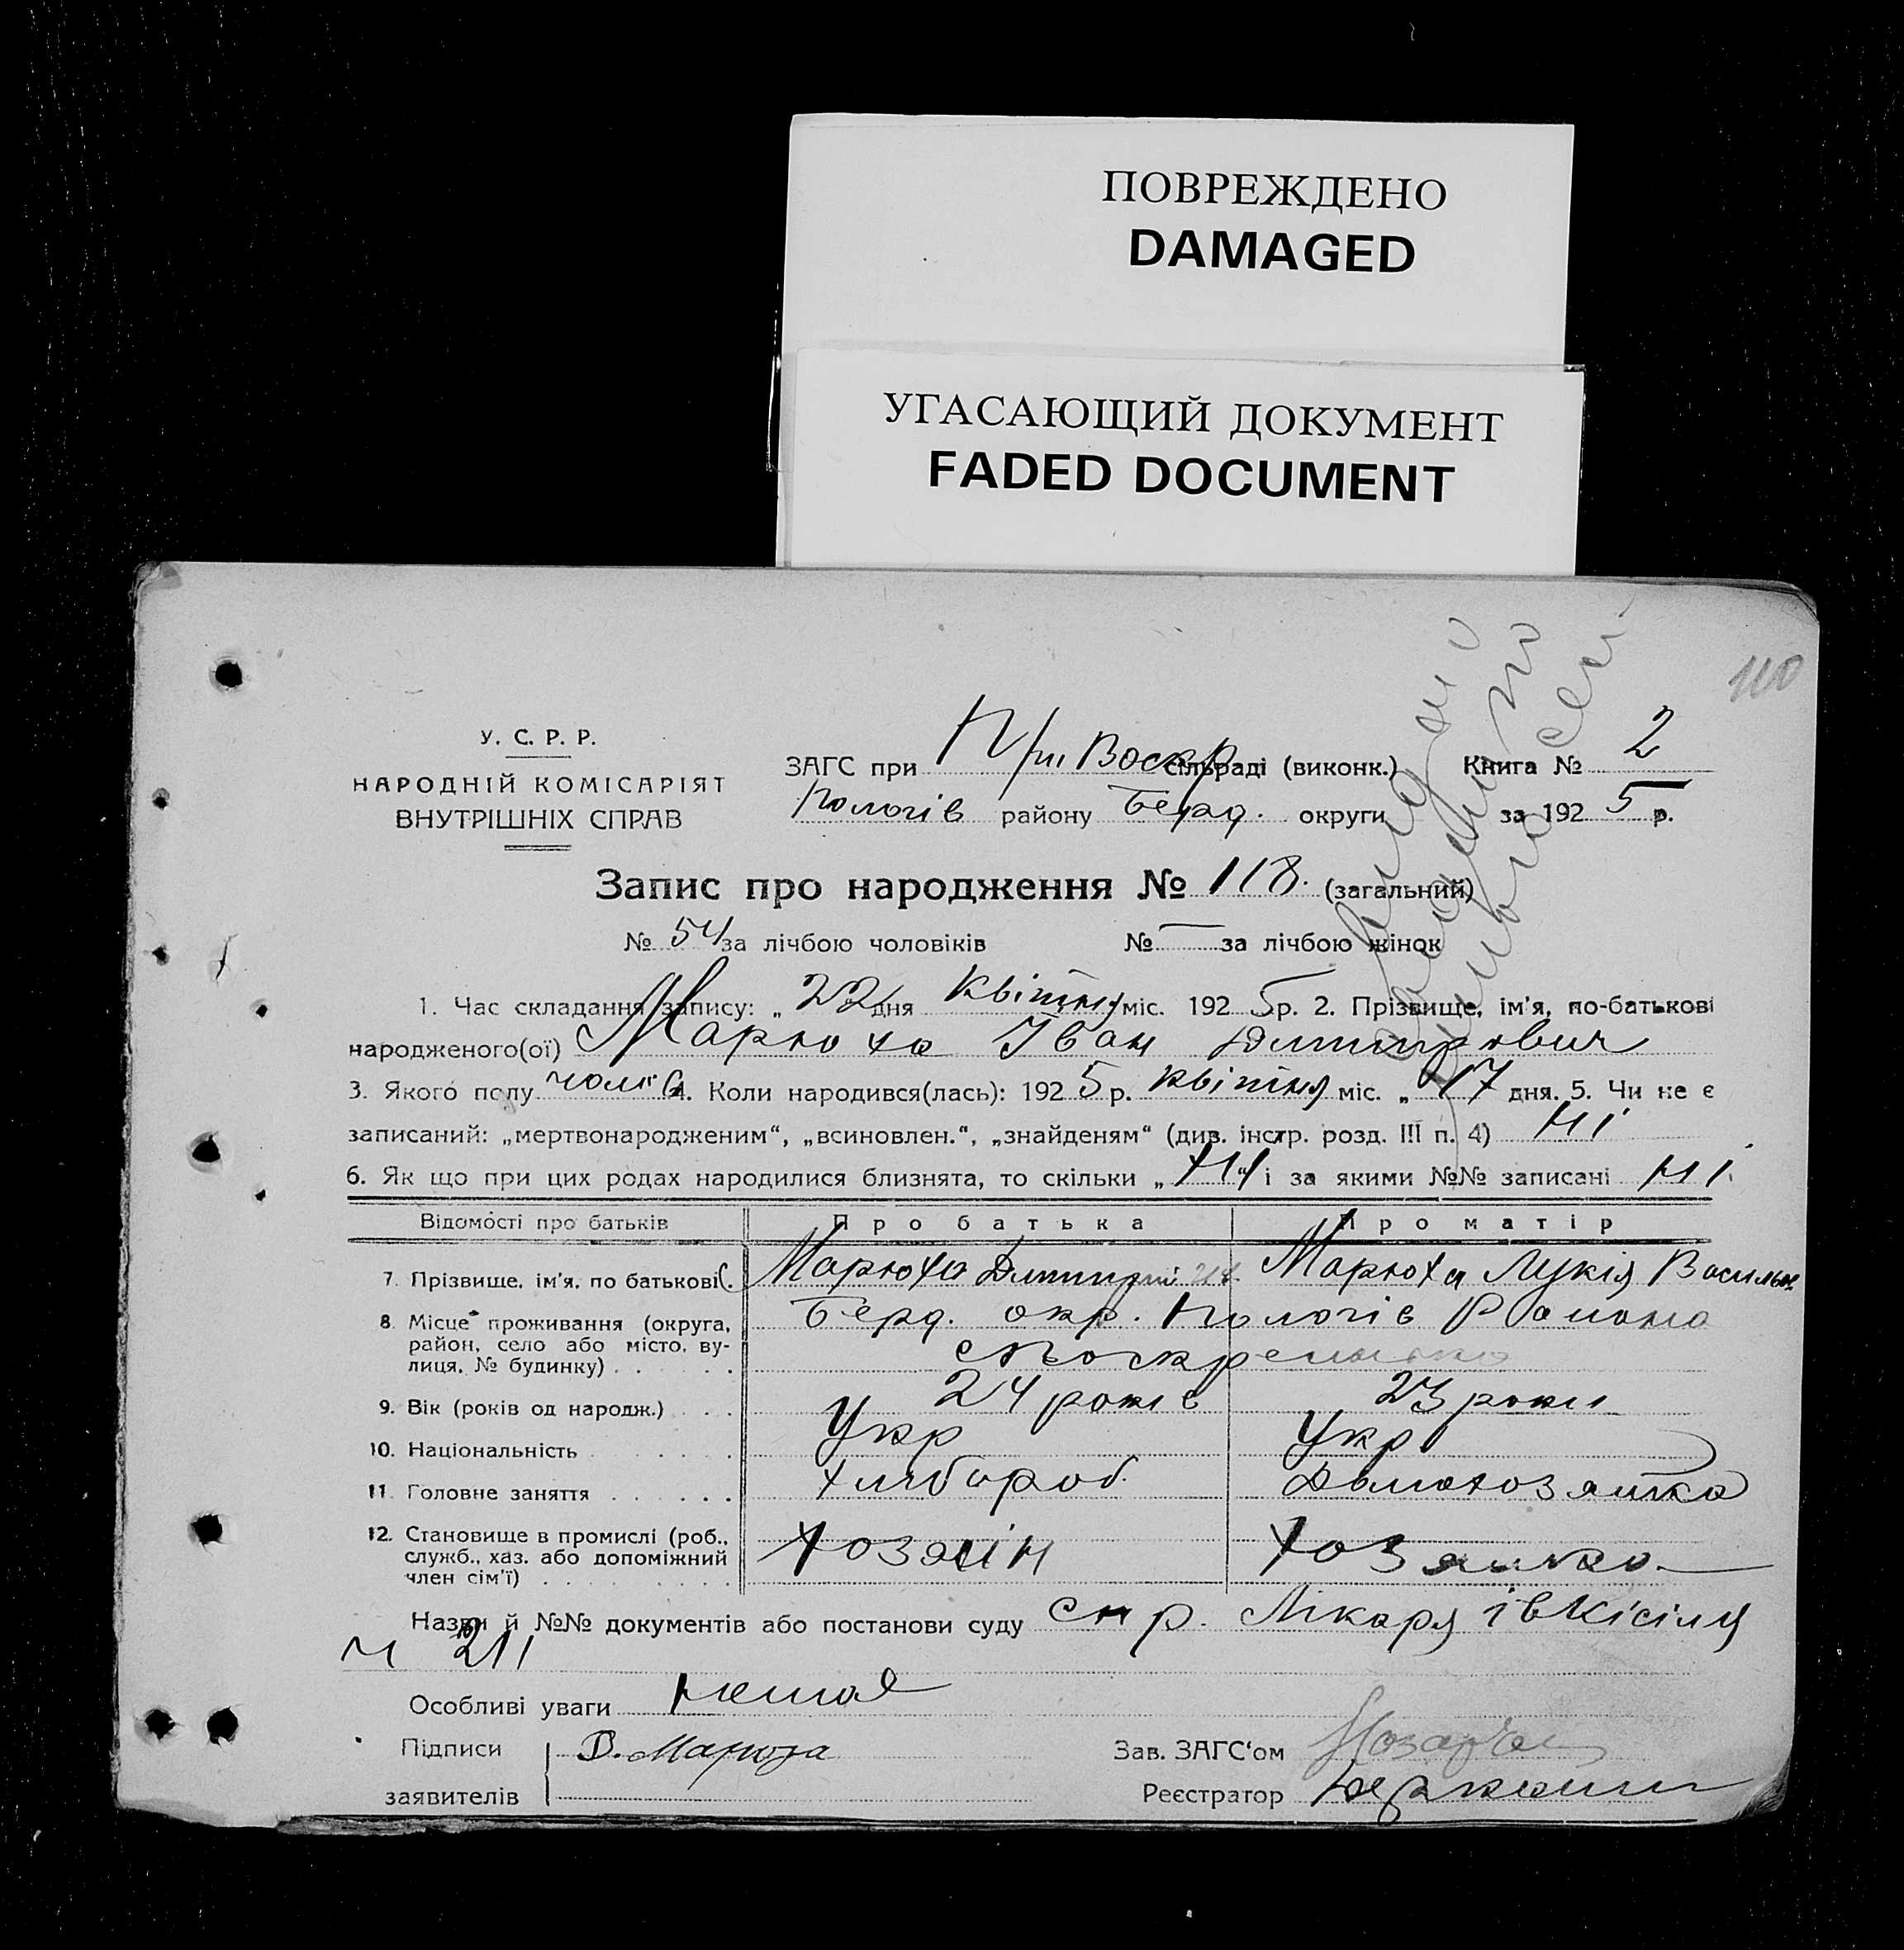 ПОВРЕЖДЕНО
DAMAGED
УГАСАЮЩИЙ ДОКУМЕНТ
FADED DOCUMENT
110
У. С. Р. Р.
НАРОДНІЙ КОМІСАРІЯТ
ВНУТРІШНІХ СПРАВ
ЗАГС при При Воскр сільраді (виконк.) Книга № 2
Пологів району Берд. округи за 1925 р.
Запис про народження № 118. (загальний)
№ 54 за лічбою чоловіків № — за лічбою жінок
1. Час складання запису: „ 22 дня квітня міс. 1925 р. 2. Прізвище, ім'я, по-батькові
народженого(ої) Марюха Іван Дмитрович
3. Якого полу чолов 4. Коли народився(лась): 1925 р. квітня міс. „ 17 дня. 5. Чи не є
записаний: „мертвонародженим“, „всиновлен.“, „знайденям“ (див. інстр. розд. III п. 4) ні
6. Як що при цих родах народилися близнята, то скільки „ ні “ і за якими №№ записані ні.
Відомості про батьків Про батька Про матір
7. Прізвище, ім'я, по батькові. Марюха Дмитрий Марюха Лукія Васильов
8. Місце проживання (округа, район, село або місто, вулиця, № будинку) Берд. окр. Пологів Района
с Воскресенка
9. Вік (років од народж.) 24 років 23 роки
10. Національність Укр Укр
11. Головне заняття хлібороб. Домохозяйка
12. Становище в промислі (роб., служб., хаз. або допоміжний член сім'ї) хозяїн хозяйка
Назви й №№ документів або постанови суду спр. Лікаря
№ 211
Особливі уваги немає
Підписи Д. Марюха Зав. ЗАГС'ом
заявителів Реєстратор